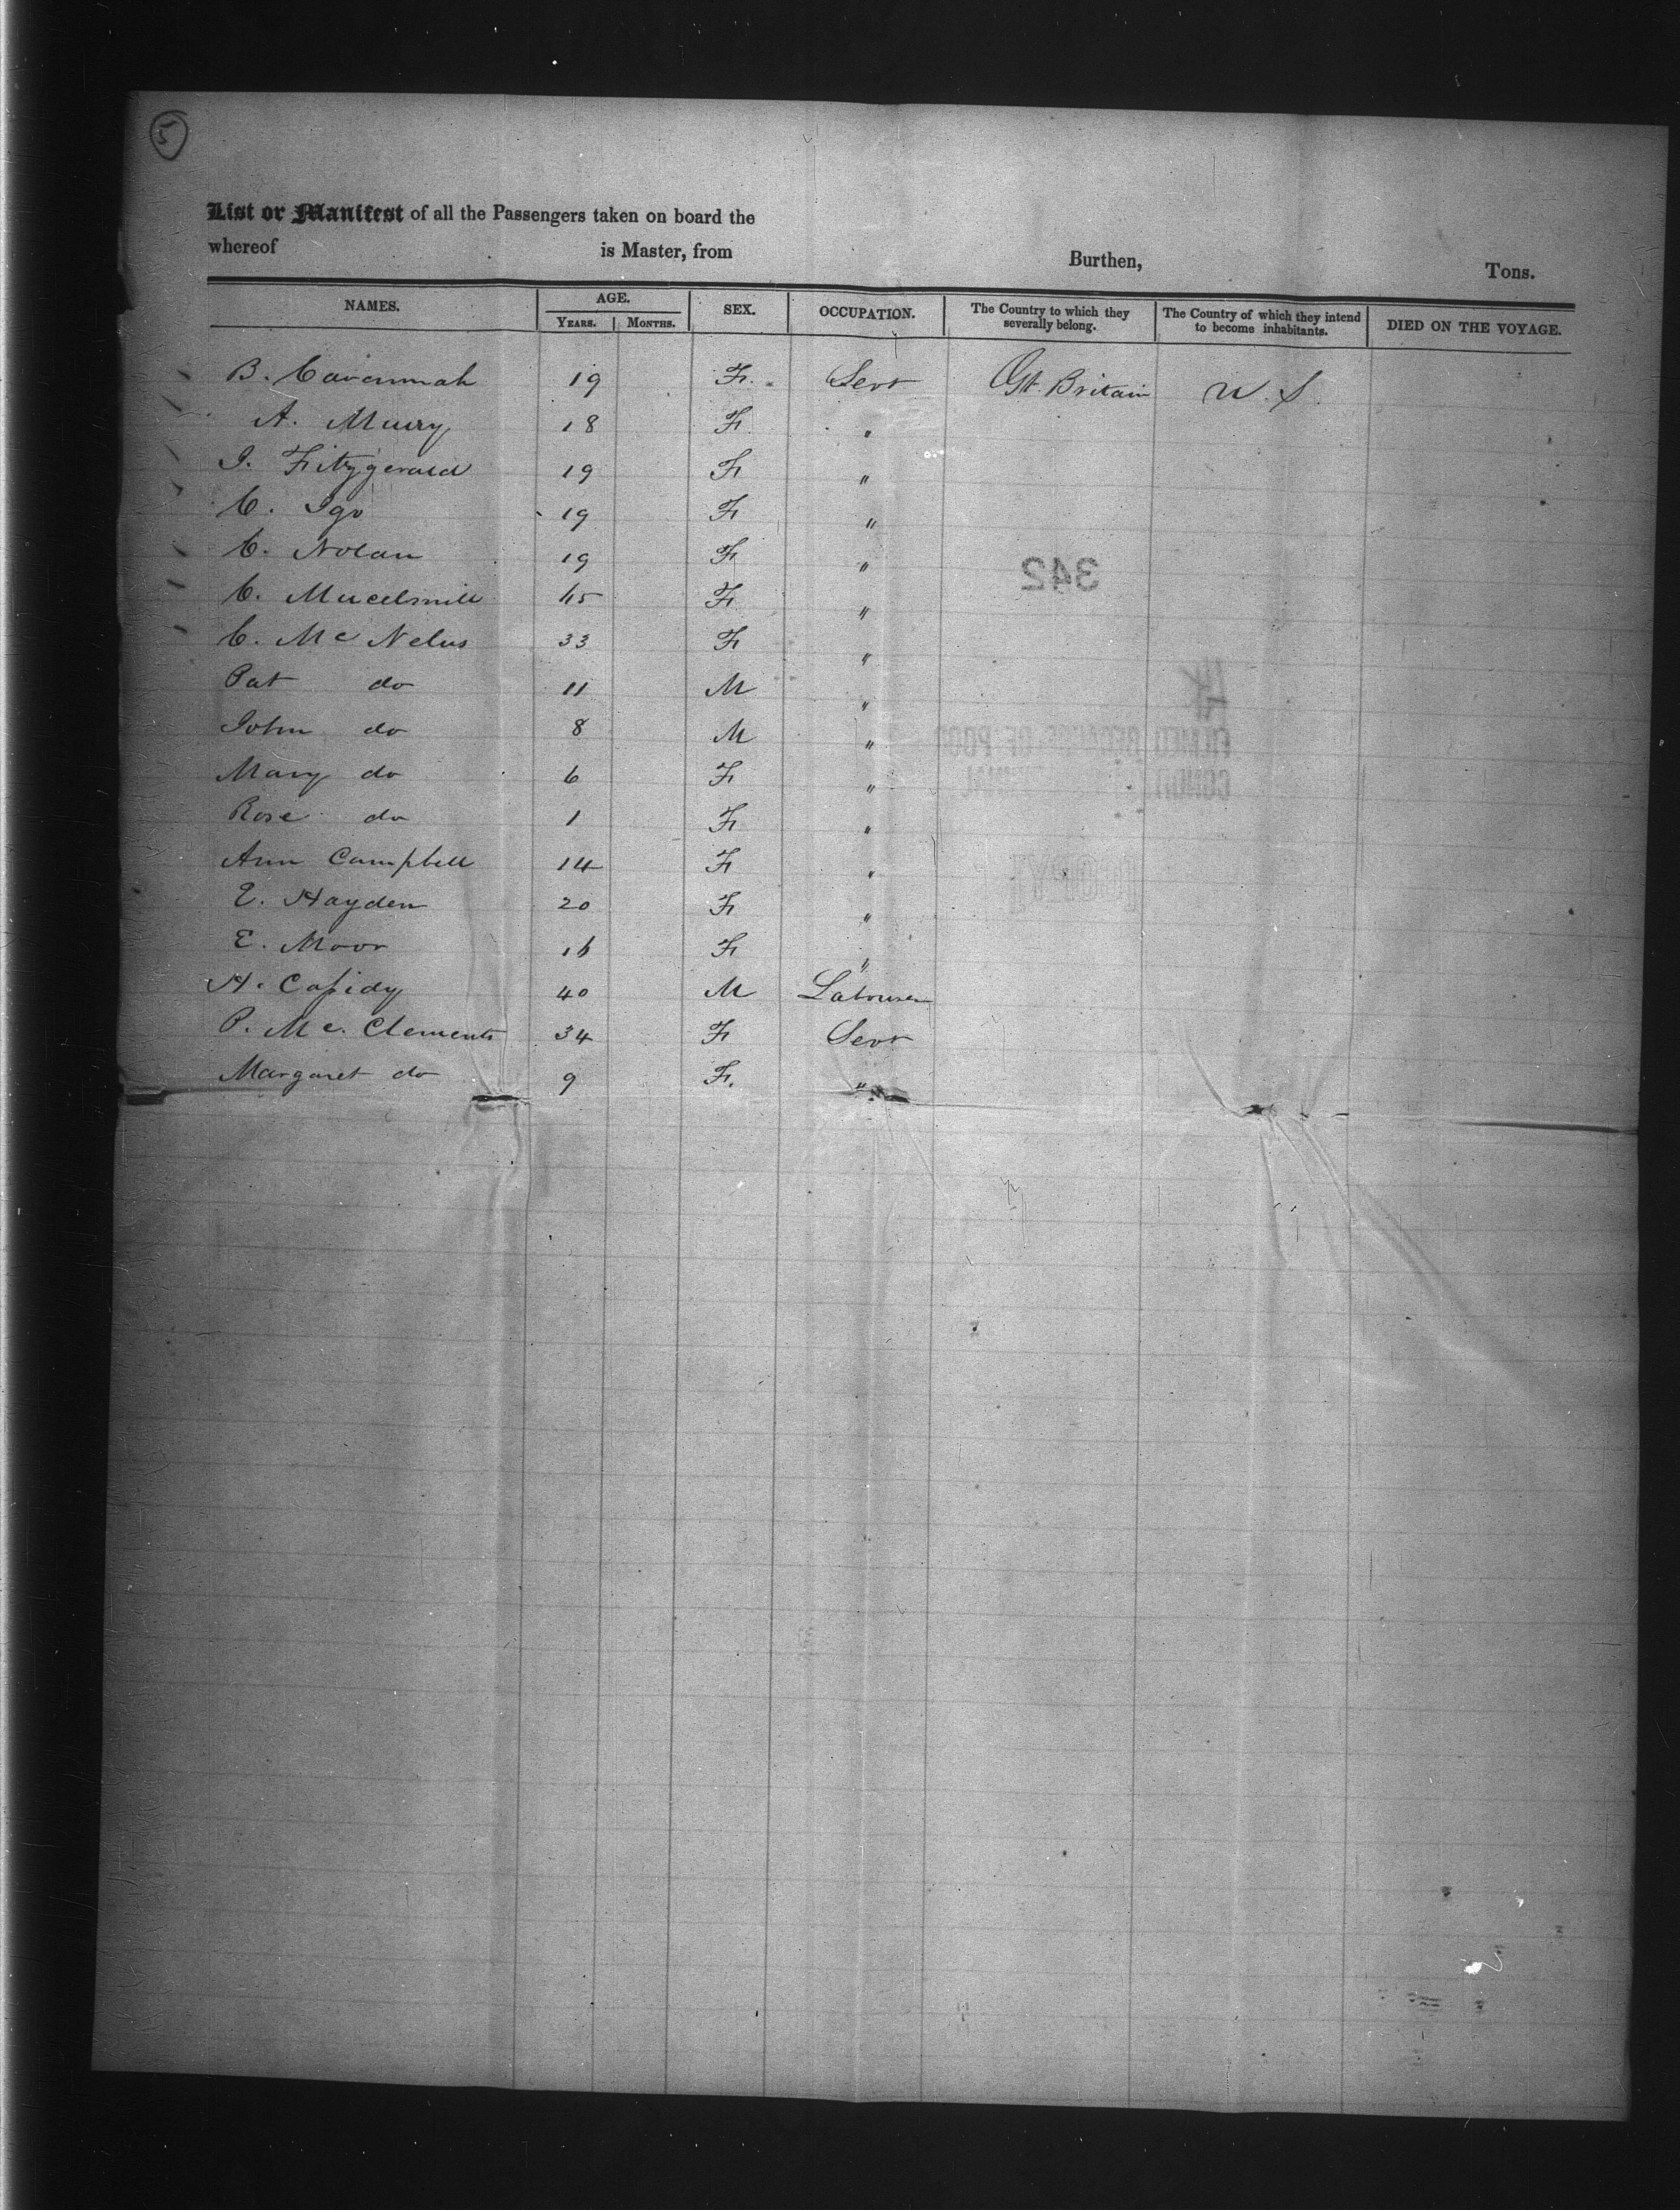 5
List or Manifest of all the Passengers taken on board the
whereof is Master, from Burthen, Tons.
NAMES. AGE. YEARS. MONTHS. SEX. OCCUPATION. The Country to which they severally belong. The Country of which they intend to become inhabitants. DIED ON THE VOYAGE.
B. Cavennah 19 F. Servt Gt. Britain U. S.
A. 18 F "
J. Fitzgerald 19 F "
C. Igo 19 F "
C. Nolan 19 F "
C. 45 F "
C. Mc Nelus 33 F "
Pat do 11 M "
John do 8 M "
Mary do 6 F "
Rose do 1 F "
Ann Campbell 14 F "
E. Hayden 20 F "
E. Moor 16 F "
H. Cassidy 40 M Labourer
P. Mc. Clements 34 F Servt
Margaret do 9 F. "
342